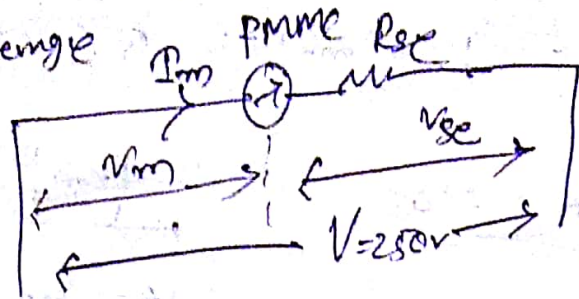 PMMC Rse
Im
Vm Vse
V=250v